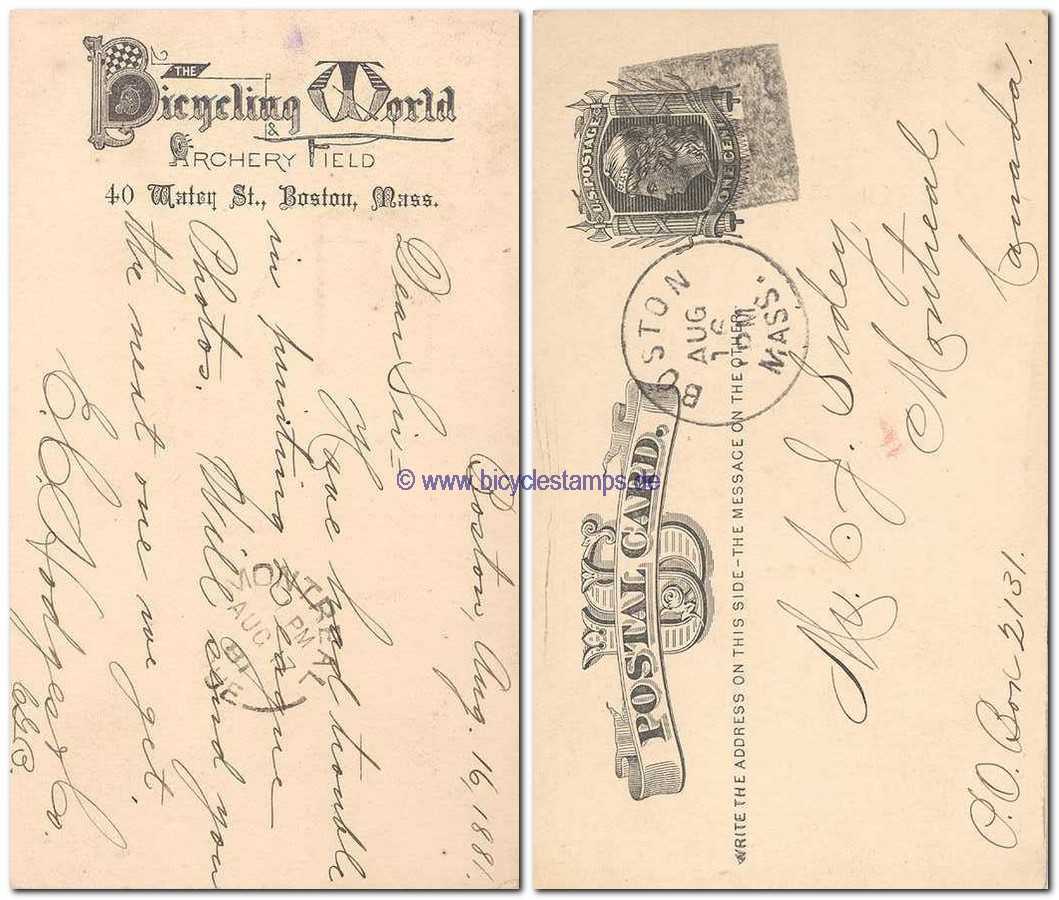 THE
Bicycling World
&
ARCHERY FIELD
40 Water St., Boston, Mass.
Boston, Aug. 16, 1881.
Dear Sir—
had trouble
in printing League
Photos. Will send you
the next one we get.
E. C. Hodges & Co.
MONTREAL
PM
AUG
81
QUE
© www.bicyclestamps.de
U.S. POSTAGE
ONE CENT
BOSTON
AUG
16
PM
MASS.
US
POSTAL CARD.
WRITE THE ADDRESS ON THIS SIDE—THE MESSAGE ON THE OTHER
Mr. C. J. Sidey,
Montreal,
Canada.
P.O. Box 2131.